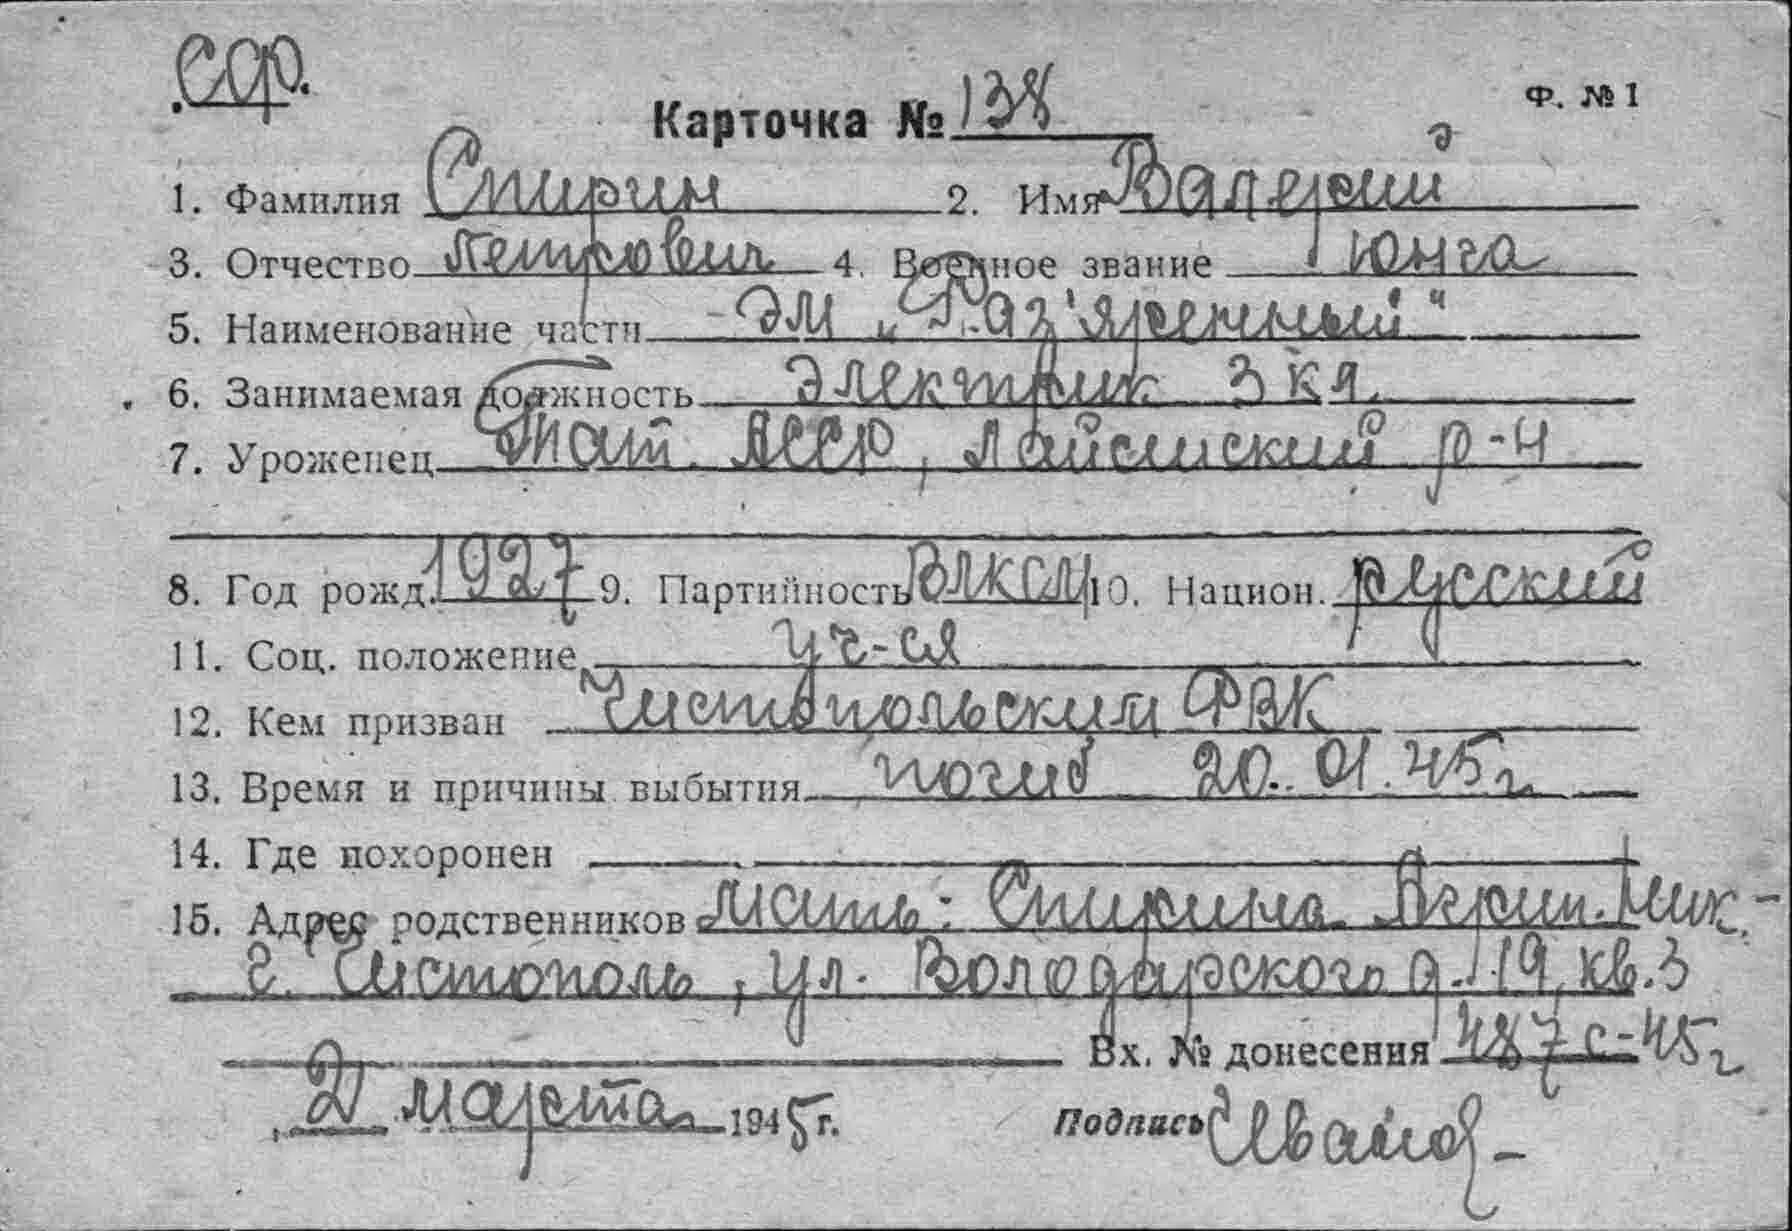 СФ.
Ф. № 1
Карточка № 138
1. Фамилия Спирин 2. Имя Валерий
3. Отчество Петрович 4. Военное звание юнга
5. Наименование части ЭМ „Раз'яренный"
6. Занимаемая должность Электрик 3 кл.
7. Уроженец Тат. АССР, Лаишский р-н
8. Год рожд. 1927 9. Партийность ВЛКСМ 10. Национ. русский
11. Соц. положение уч-ся
12. Кем призван Чистопольским РВК
13. Время и причины выбытия погиб 20.01.45 г.
14. Где похоронен
15. Адрес родственников Мать: Спирина Агрип. Ник.-
г. Чистополь, ул. Володарского д. 19, кв. 3
Вх. № донесения 487 с-45 г
2 марта 1945 г.
Подпись Иванов